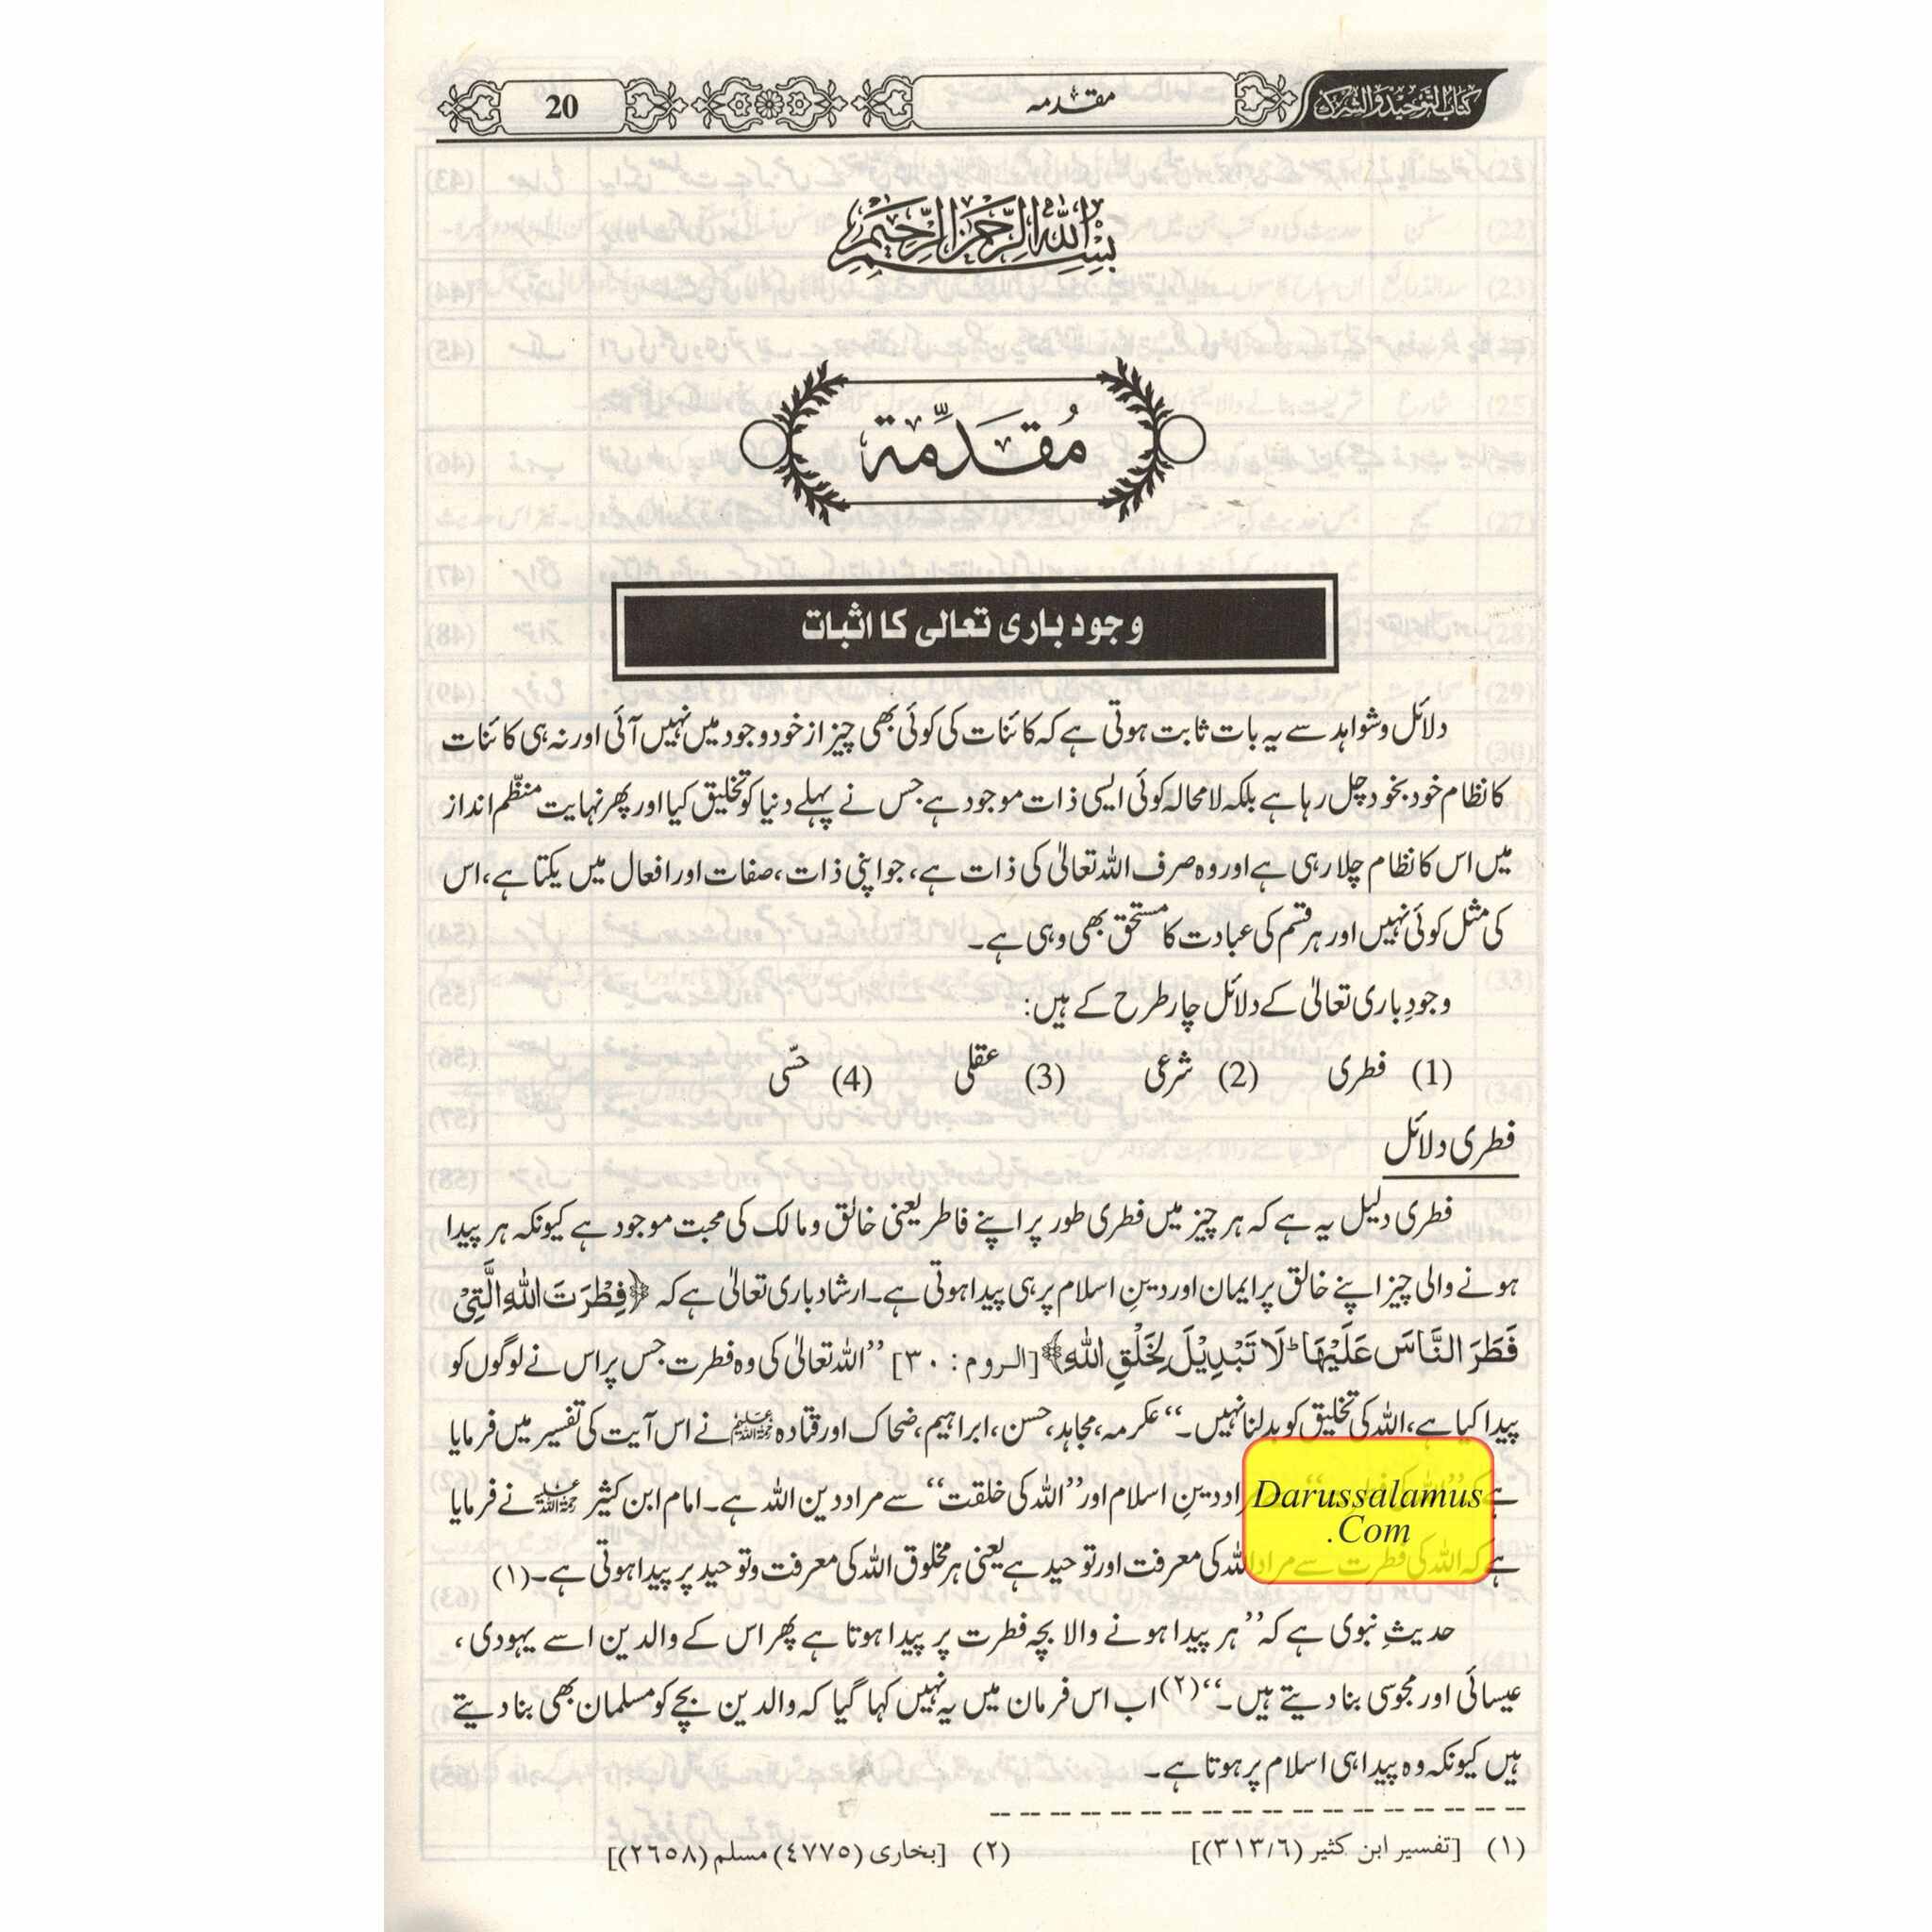 كتاب التوحيد والشرك
مقدمہ
20
بسم الله الرحمن الرحيم
مُقدِّمة
وجود باری تعالی کا اثبات
دلائل و شواہد سے یہ بات ثابت ہوتی ہے کہ کائنات کی کوئی بھی چیز از خود وجود میں نہیں آئی اور نہ ہی کائنات
کا نظام خود بخود چل رہا ہے بلکہ لامحالہ کوئی ایسی ذات موجود ہے جس نے پہلے دنیا کو تخلیق کیا اور پھر نہایت منظّم انداز
میں اس کا نظام چلا رہی ہے اور وہ صرف اللہ تعالیٰ کی ذات ہے، جو اپنی ذات، صفات اور افعال میں یکتا ہے، اس
کی مثل کوئی نہیں اور ہر قسم کی عبادت کا مستحق بھی وہی ہے۔
وجودِ باری تعالیٰ کے دلائل چار طرح کے ہیں:
(1) فطری (2) شرعی (3) عقلی (4) حسّی
فطری دلائل
فطری دلیل یہ ہے کہ ہر چیز میں فطری طور پر اپنے فاطر یعنی خالق و مالک کی محبت موجود ہے کیونکہ ہر پیدا
ہونے والی چیز اپنے خالق پر ایمان اور دینِ اسلام پر ہی پیدا ہوتی ہے۔ ارشاد باری تعالیٰ ہے کہ ﴿فِطْرَتَ اللّٰهِ الَّتِيْ
فَطَرَ النَّاسَ عَلَيْهَا ؕ لَا تَبْدِيْلَ لِخَلْقِ اللّٰهِ﴾ [الروم : ٣٠] ’’اللہ تعالیٰ کی وہ فطرت جس پر اس نے لوگوں کو
پیدا کیا ہے، اللہ کی تخلیق کو بدلنا نہیں۔‘‘ عکرمہ، مجاہد، حسن، ابراہیم، ضحاک اور قتادہ رحمہم اللہ نے اس آیت کی تفسیر میں فرمایا
ہے کہ ’’اللہ کی فطرت‘‘ سے مراد دینِ اسلام اور ’’اللہ کی خلقت‘‘ سے مراد دین اللہ ہے۔ امام ابن کثیر رحمہ اللہ نے فرمایا
Darussalamus
.Com
ہے کہ اللہ کی فطرت سے مراد اللہ کی معرفت اور توحید ہے یعنی ہر مخلوق اللہ کی معرفت و توحید پر پیدا ہوتی ہے۔(۱)
حدیثِ نبوی ہے کہ ’’ہر پیدا ہونے والا بچہ فطرت پر پیدا ہوتا ہے پھر اس کے والدین اسے یہودی،
عیسائی اور مجوسی بنا دیتے ہیں۔‘‘(۲) اب اس فرمان میں یہ نہیں کہا گیا کہ والدین بچے کو مسلمان بھی بنا دیتے
ہیں کیونکہ وہ پیدا ہی اسلام پر ہوتا ہے۔
(١) [تفسیر ابن کثیر (٣١٣/٦)] (٢) [بخاری (٤٧٧٥) مسلم (٢٦٥٨)]